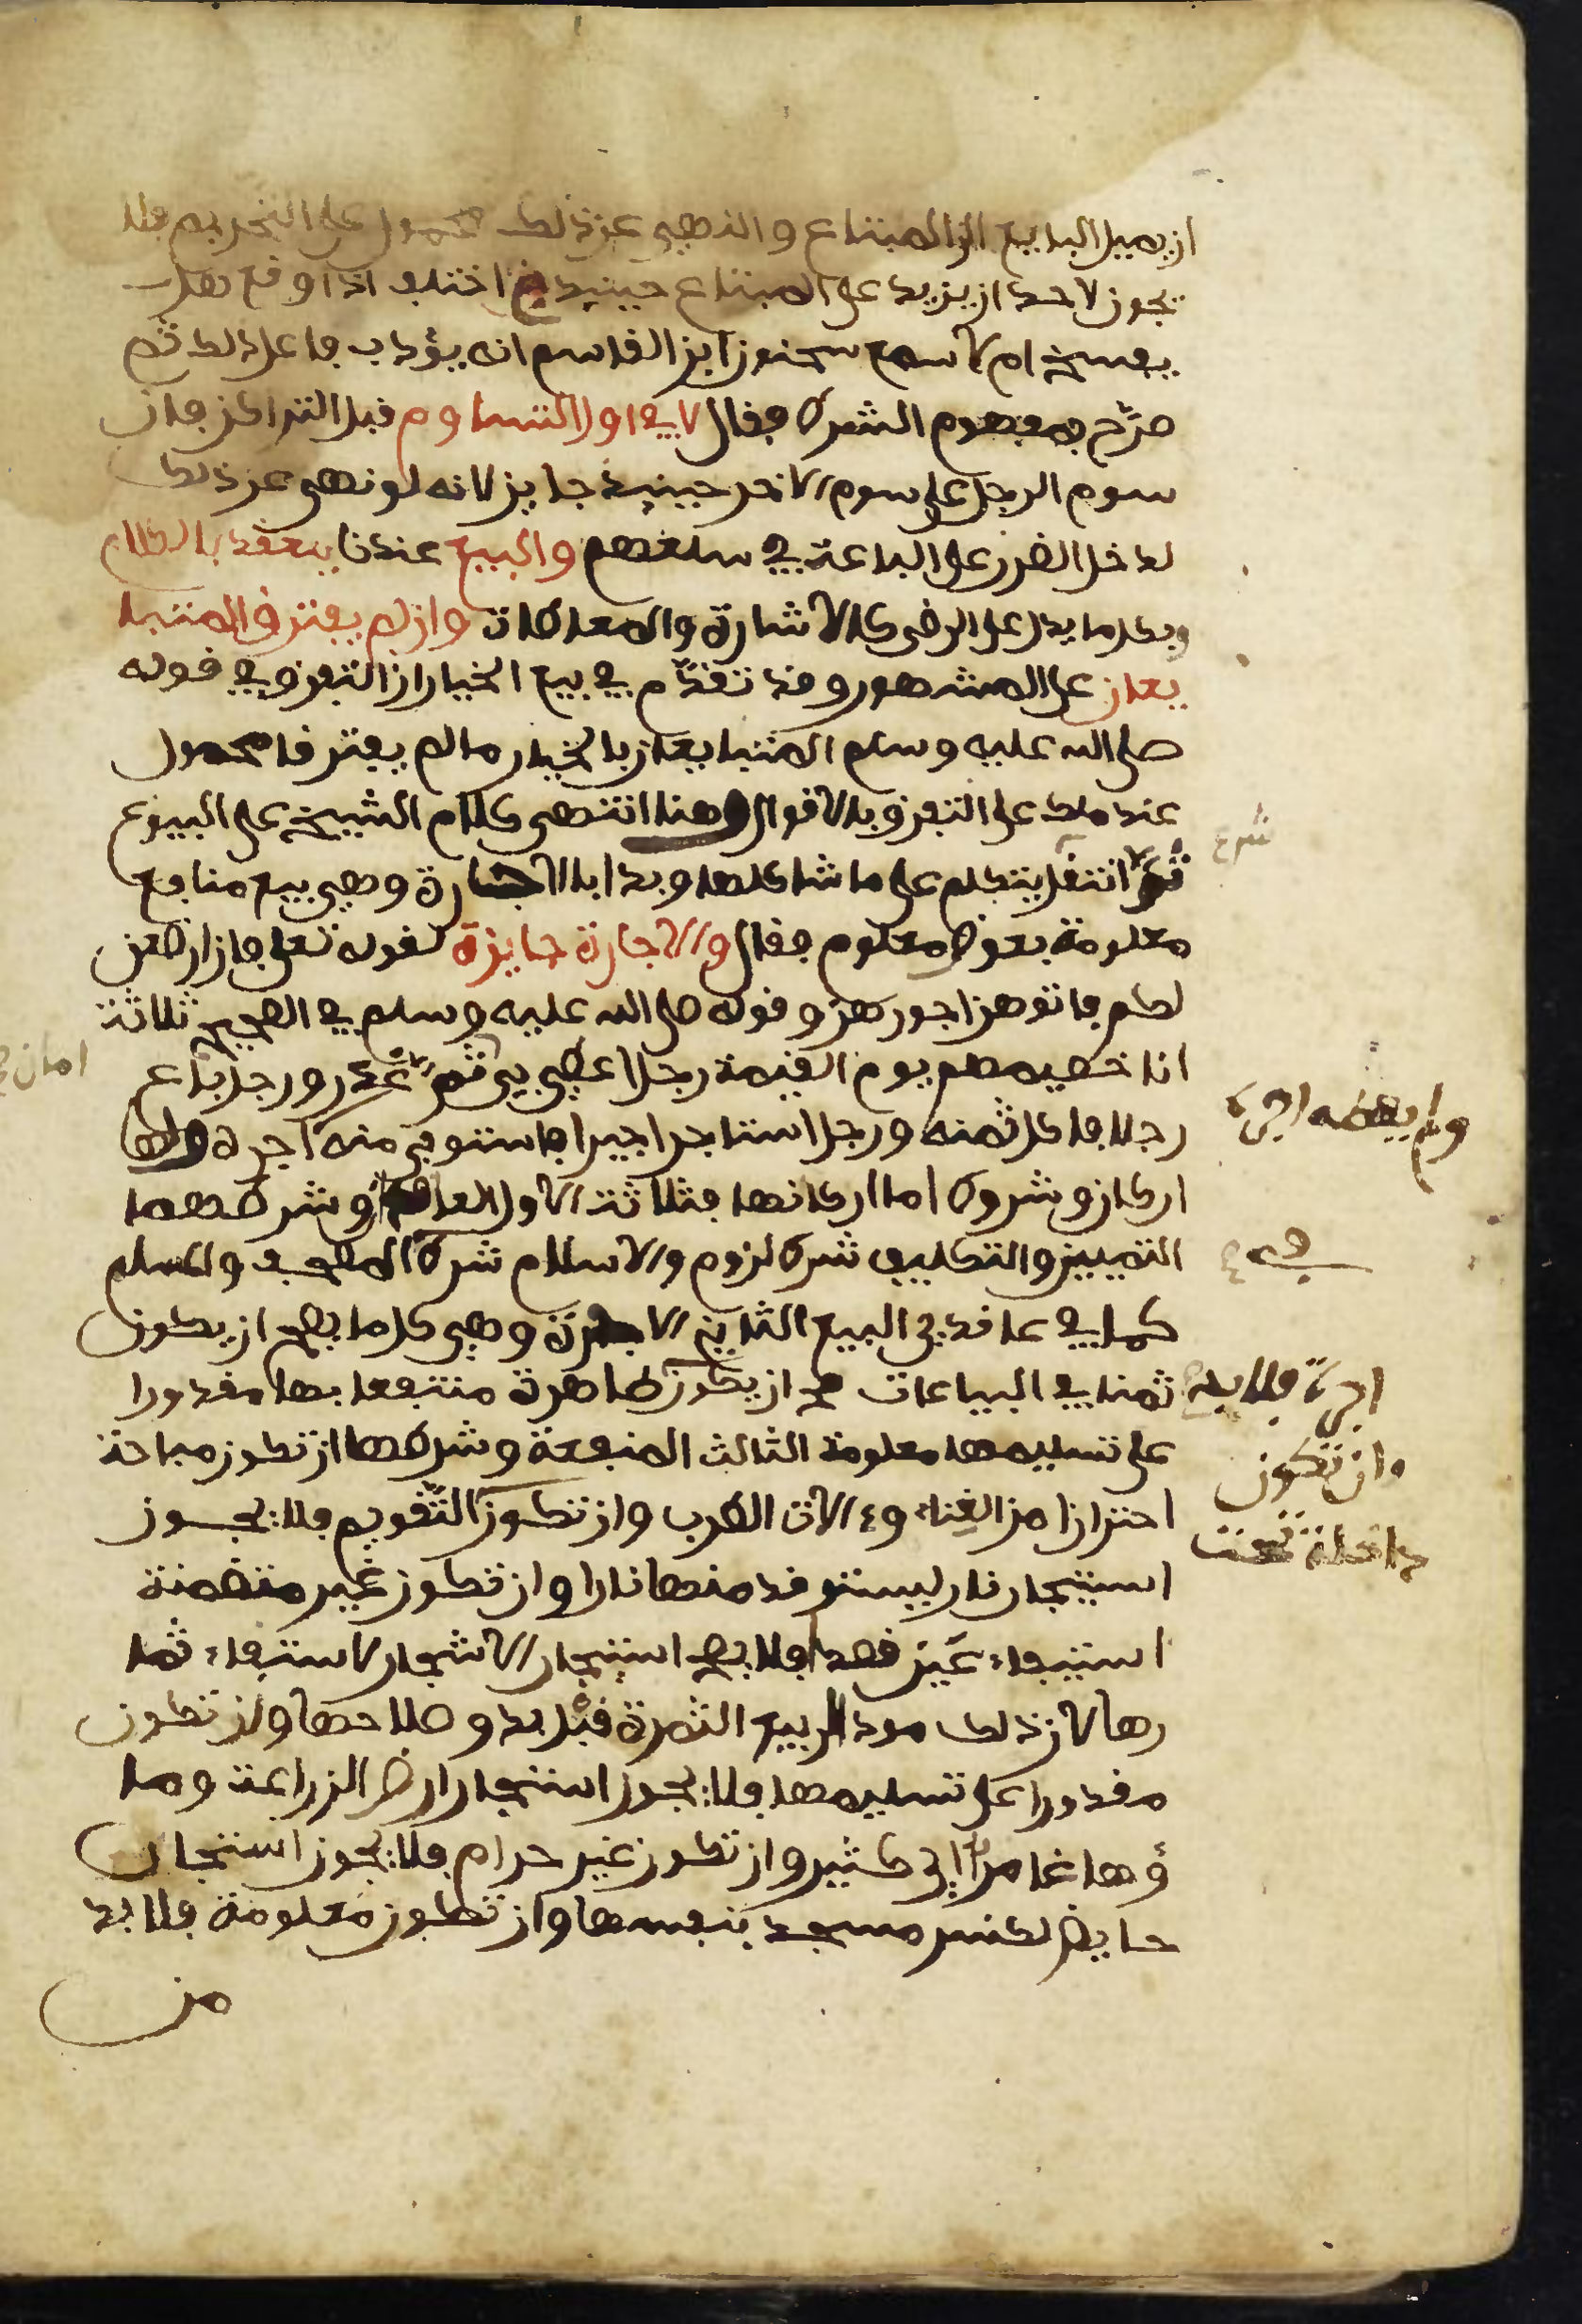 ان يميل البايع الى المبتاع والنهي عن ذلك محمول على التحريم فلا
يجوز لاحد ان يزيد على المبتاع حينيذ اختلف اذا وقع هل
يفسخ ام لا سمع سحنون ابن القاسم انه يؤدب فاعل ذلك ثم
صرّح بمفهوم الشرط فقال لا في اول التساوم قبل التراكن فان
سوم الرجل على سوم الاخر حينيذ جايز لانه لو نهى عن ذلك
لدخل الضرر على الباعة في سلعهم والبيع عندنا ينعقد بالكلام
وبكل ما يدل على الرضى كالاشارة والمعاطات وان لم يفترق المتبا
يعان على المشهور وقد تقدّم في بيع الخيار ان التفرق في قوله
صلى الله عليه وسلم المتبايعان بالخيار ما لم يفترقا محمول
عند ملك على التفرق بالاقوال وهنا انتهى كلام الشيخ على البيوع
ثمّ انتقل يتكلم على ما شاكلها وبدا بالاجارة وهي بيع منافع
معلومة بعوض معلوم فقال والاجارة جايزة لقوله تعلى فان ارضعن
لكم فاتوهن اجورهن وقوله صلى الله عليه وسلم في الصحيح ثلاثة
انا خصيمهم يوم القيمة رجل اعطى بي ثم غدر ورجل باع
رجلا فاكل ثمنه ورجل استاجر اجيرا فاستوفى منه اجرة ولها
ولم يعطه اجره
اركان وشروط اما اركانها فثلاثة الاول العاقد وشرطهما
التمييز والتكليف شرط لزوم والاسلام شرط المصحف والمسلم
كما في عاقدي البيع الثاني الاجرة وهي كل ما يصح ان يكون
ثمنا في البياعات صح ان يكون طاهرة منتفعا بها مقدورا
اجرة فلا بد
على تسليمها معلومة الثالث المنفعة وشرطها ان تكون مباحة
وان تكون
احترازا من الغناء وءالات الطرب وان تكون التّقويم فلا يجوز
داخلة تحت
استيجار نار ليستوقد منها نارا وان تكون غير متضمنة
استيفاء عين قصدا فلا يصح استيجار الاشجار لاستيفاء ثما
رها لان ذلك مود الى بيع الثمرة قبل بدو صلاحها وان تكون
مقدورا على تسليمها فلا يجوز استيجار ارض الزراعة وما
ؤها غامر اي كثير وان تكون غير حرام فلا يجوز استيجار
حايض لكنس مسجد بنفسها وان تكون معلومة فلا بد
من